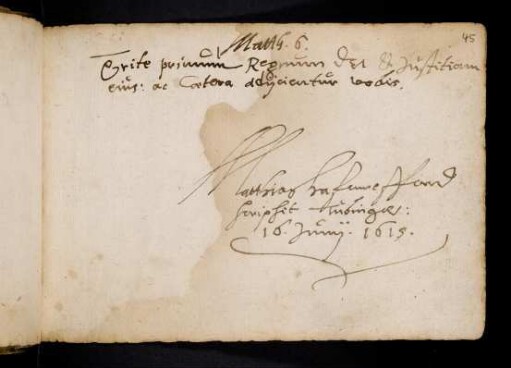 45
Matth. 6.
Qrite primum Regnum Dei & Justitiam
eius: ac Cætera adijcientur vobis.
Matthias
scripsit Tubingæ:
16. Junij. 1615.